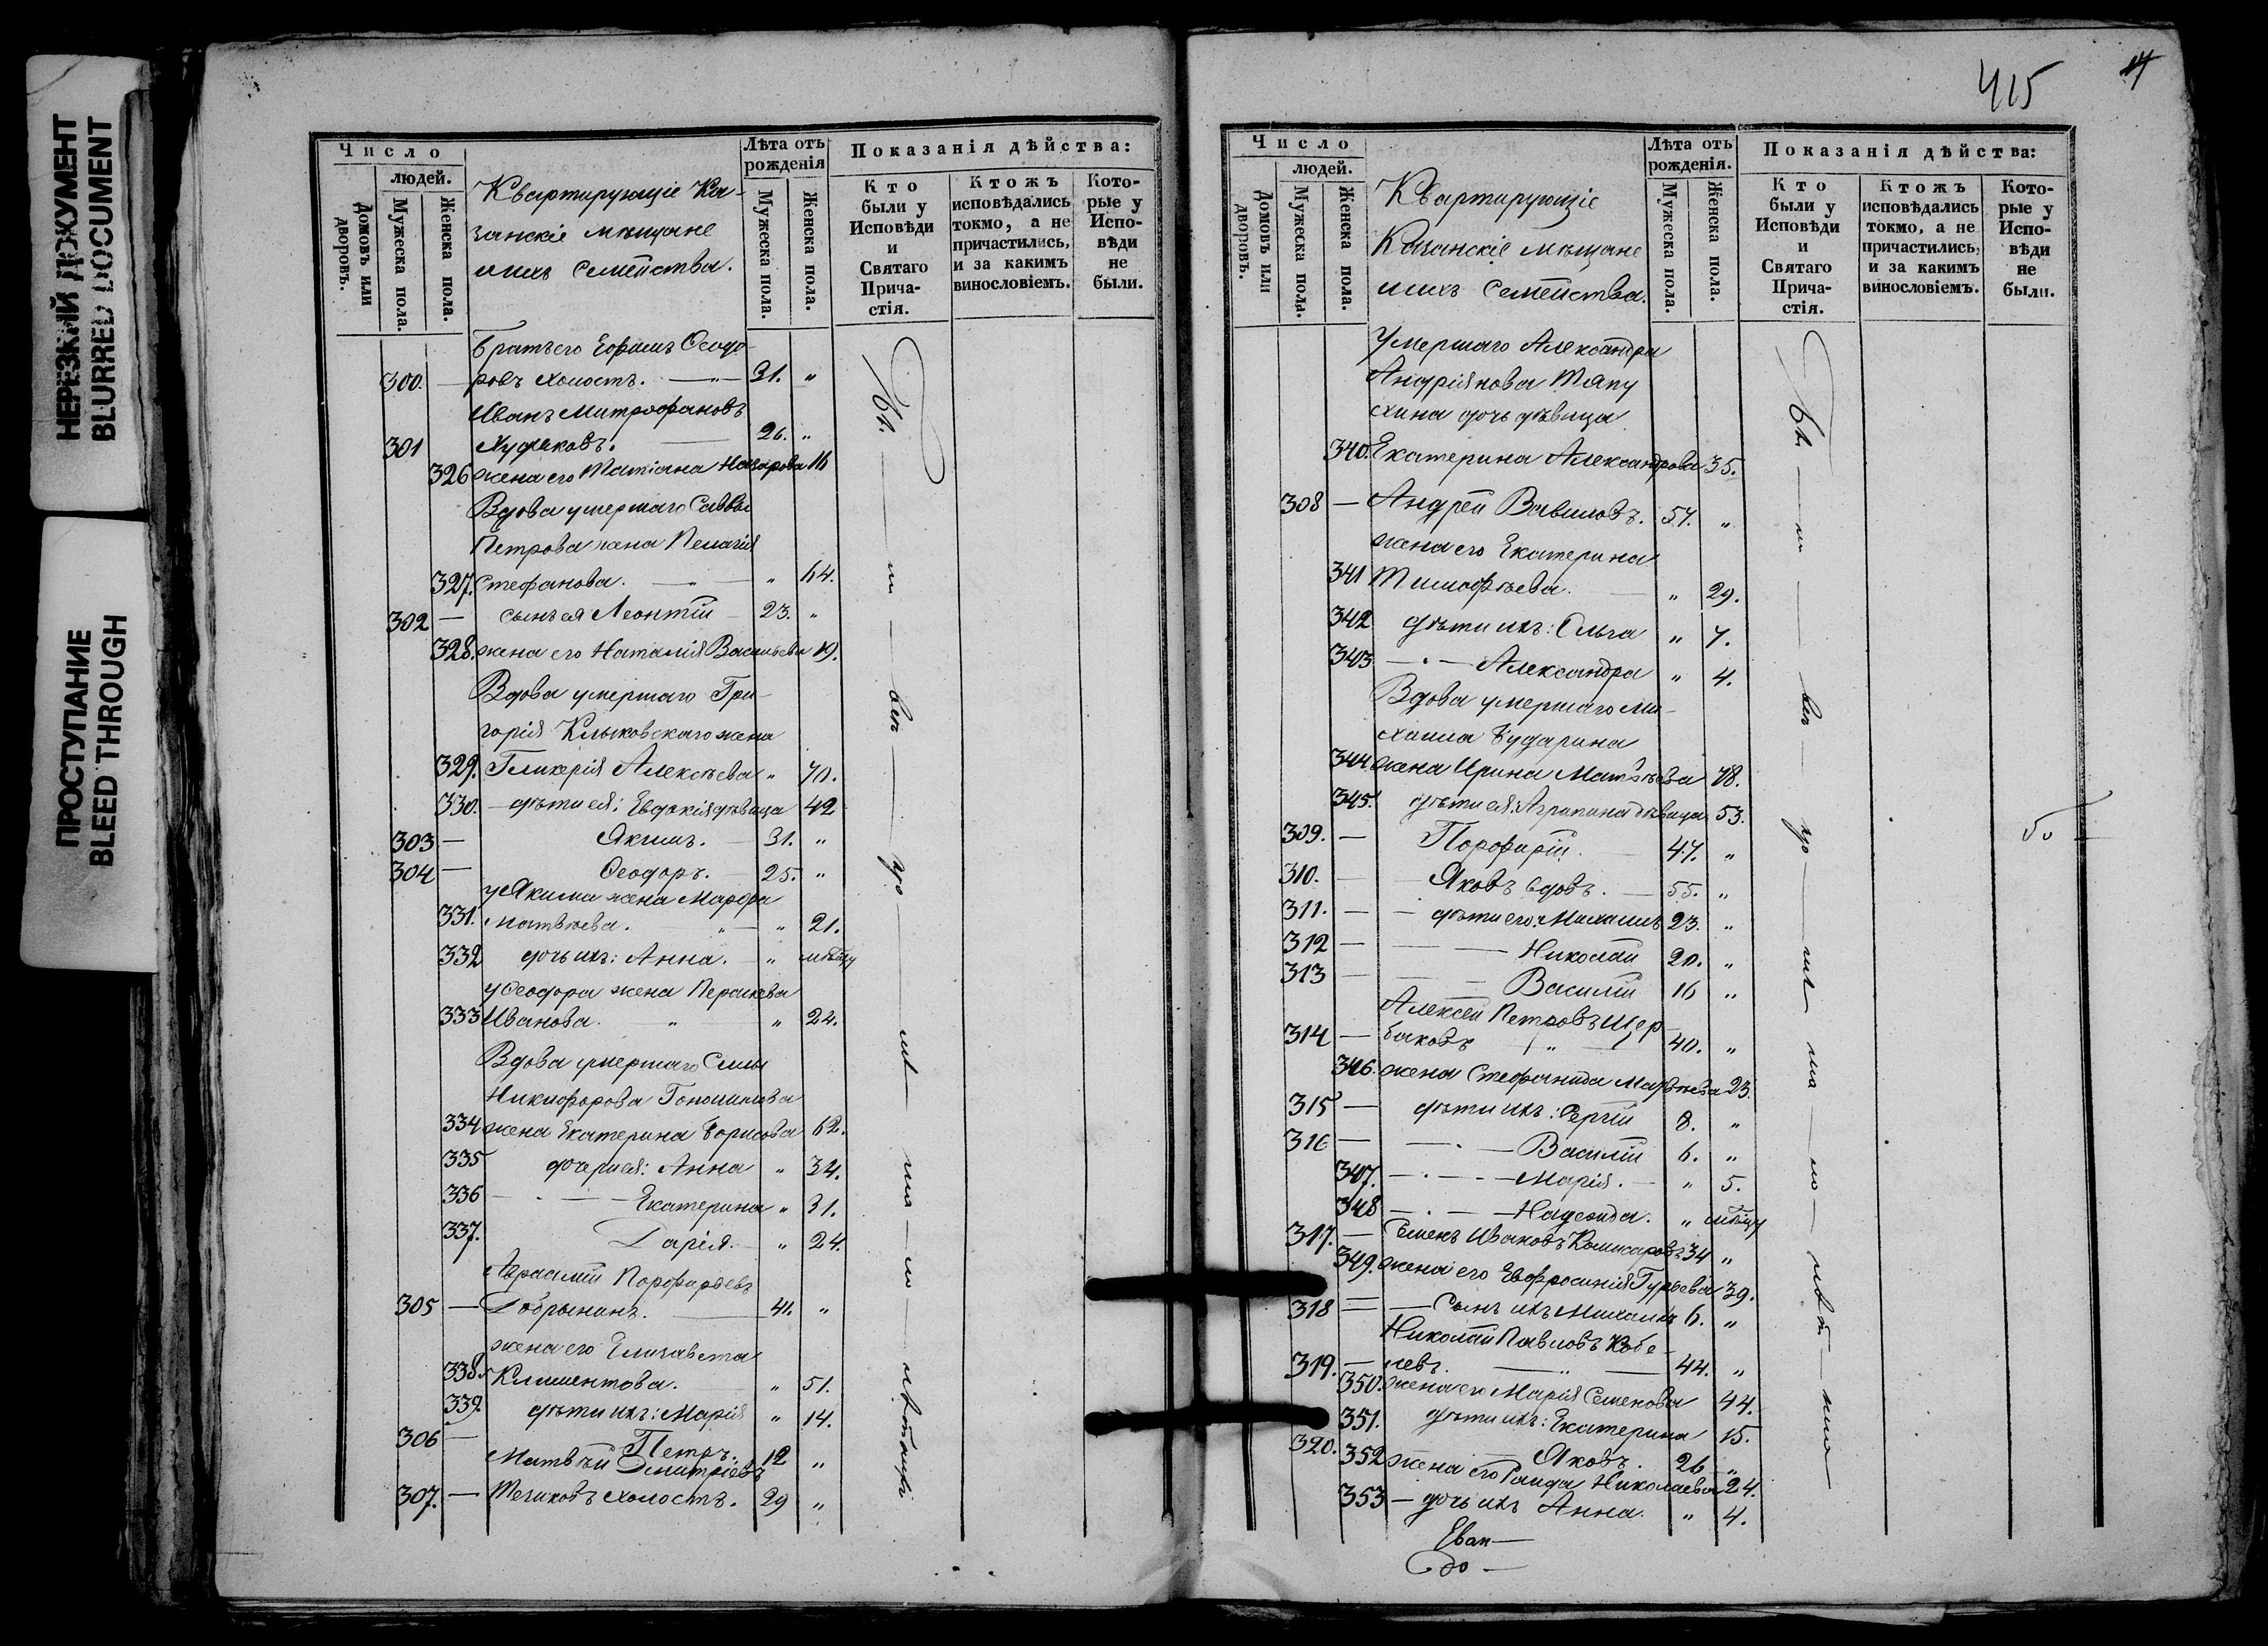 НЕРЕЗКИЙ ДОКУМЕНТ
BLURRED DOCUMENT
ПРОСТУПАНИЕ
BLEED THROUGH
Число
людей.
Домовъ или дворовъ.
Мужеска пола.
Женска пола.
Квартирующіе Ка-
занскіе мѣщане
и ихъ семейства.
Лѣта отъ рожденія
Мужеска пола.
Женска пола.
Показанія дѣйства:
Кто были у Исповѣди и Святаго Прича- стія.
Ктожъ исповѣдались токмо, а не причастились, и за какимъ винословіемъ.
Кото- рые у Испо- вѣди не были.
Братъ его Ефимъ Ѳеодо-
300. — ровъ холостъ. — 31. "
Иванъ Митрофановъ
301 Худяковъ. — 26. "
326 жена его Татіана Назарова 16
Вдова умершаго Саввы
Петрова жена Пелагія
327. Стефанова. — " 64.
302 — сынъ ея Леонтій — 23. "
328. жена его Наталія Васильева 19.
Вдова умершаго Гри-
горія Клыковскаго жена
329. Гликерія Алексѣева " 70.
330. — дѣти ея: Евдокія дѣвица 42
303 — Якимъ. — 31. "
304 — Ѳеодоръ. — 25. "
у Якима жена Марфа
331. Матвѣева. " — " 21.
332 дочь ихъ: Анна. — "
у Ѳеодора жена Параскева
333 Иванова. " " 22.
Вдова умершаго Силы
Никифорова
334 жена Екатерина Борисова 62.
335 дочери ея: Анна " 34.
336 — Екатерина " 31.
337. Дарія. — " 24.
Порфирьевъ
305 — Добрынинъ. — 41. "
жена его Елизавета
338. Климентова. " 51.
339. дѣти ихъ: Марія " 14.
306 — Петръ. 12 "
Матвѣй Дмитріевъ
307. — холостъ. 29 "
415
Число
людей.
Домовъ или дворовъ.
Мужеска пола.
Женска пола.
Квартирующіе
Казанскіе мѣщане
и ихъ семейства.
Лѣта отъ рожденія.
Мужеска пола.
Женска пола.
Показанія дѣйства:
Кто были у Исповѣди и Святаго Прича- стія.
Ктожъ исповѣдались токмо, а не причастились, и за какимъ винословіемъ.
Кото- рые у Испо- вѣди не были.
Умершаго Александра
Андріянова Тяпу
хина дочь дѣвица
340. Екатерина Александрова 35.
308 — Андрей Вавиловъ. 57. "
жена его Екатерина
341 Тимофѣева. — " 29.
342 дѣти ихъ: Ольга " 7.
343 — Александра " 4.
Вдова умершаго Ми-
хаила Бударина
344 жена Ирина Матвѣева 78.
345. дѣти ея: Агрипина дѣвица 53.
309. — Порфирій. — 47. "
310. — Яковъ вдовъ. — 55. "
311. — дѣти его: Михаилъ 23. "
312 — Николай 20. "
313 — Василій 16 "
Алексей Петровъ Щер-
314 — баковъ " 40. "
346. жена Стефанида Матвѣева 23.
315 — дѣти ихъ: Сергій 8. "
316 — Василій 6. "
347. — Марія. — " 5.
348 — Надежда. "
317. — Семенъ Ивановъ Комисаровъ 34 "
349. жена его Евфросинія Гурьева 39.
318 — Сынъ ихъ Михаилъ 6. "
Николай Павловъ Кобе-
319. — левъ. — " — 44. "
350. жена его Марія Семенова 44.
351. дѣти ихъ: Екатерина 15.
320. Яковъ. 26 "
352 жена его Раида Николаева 24.
353 — дочь ихъ Анна. " 4.